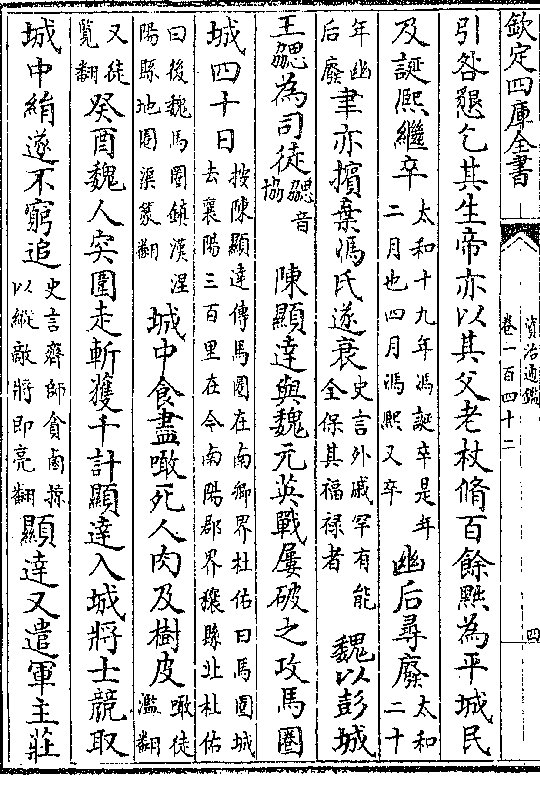 欽定四庫全書
資治通鑑
卷一百四十二
四
引咎懇乞其生帝亦以其父老杖脩百餘黜為平城民
及誕熙繼卒太和十九年馮誕卒是年二月也四月馮熙又卒幽后尋廢太和二十
年幽后廢聿亦擯棄馮氏遂衰史言外戚罕有能全保其福禄者魏以彭城
王勰為司徒勰音協陳顯達與魏元英戰屢破之攻馬圈
城四十日按陳顯達傳馬圈在南鄉界杜佑曰馬圈城去襄陽三百里在今南陽郡界穰縣北杜佑
曰後魏馬圈鎮漢涅陽縣地圈渠篆翻城中食盡噉死人肉及樹皮噉徒濫翻
又徒覧翻癸酉魏人突圍走斬獲千計顯達入城將士競取
城中絹遂不窮追史言齊師貪鹵掠以縱敵將即亮翻顯達又遣軍主莊